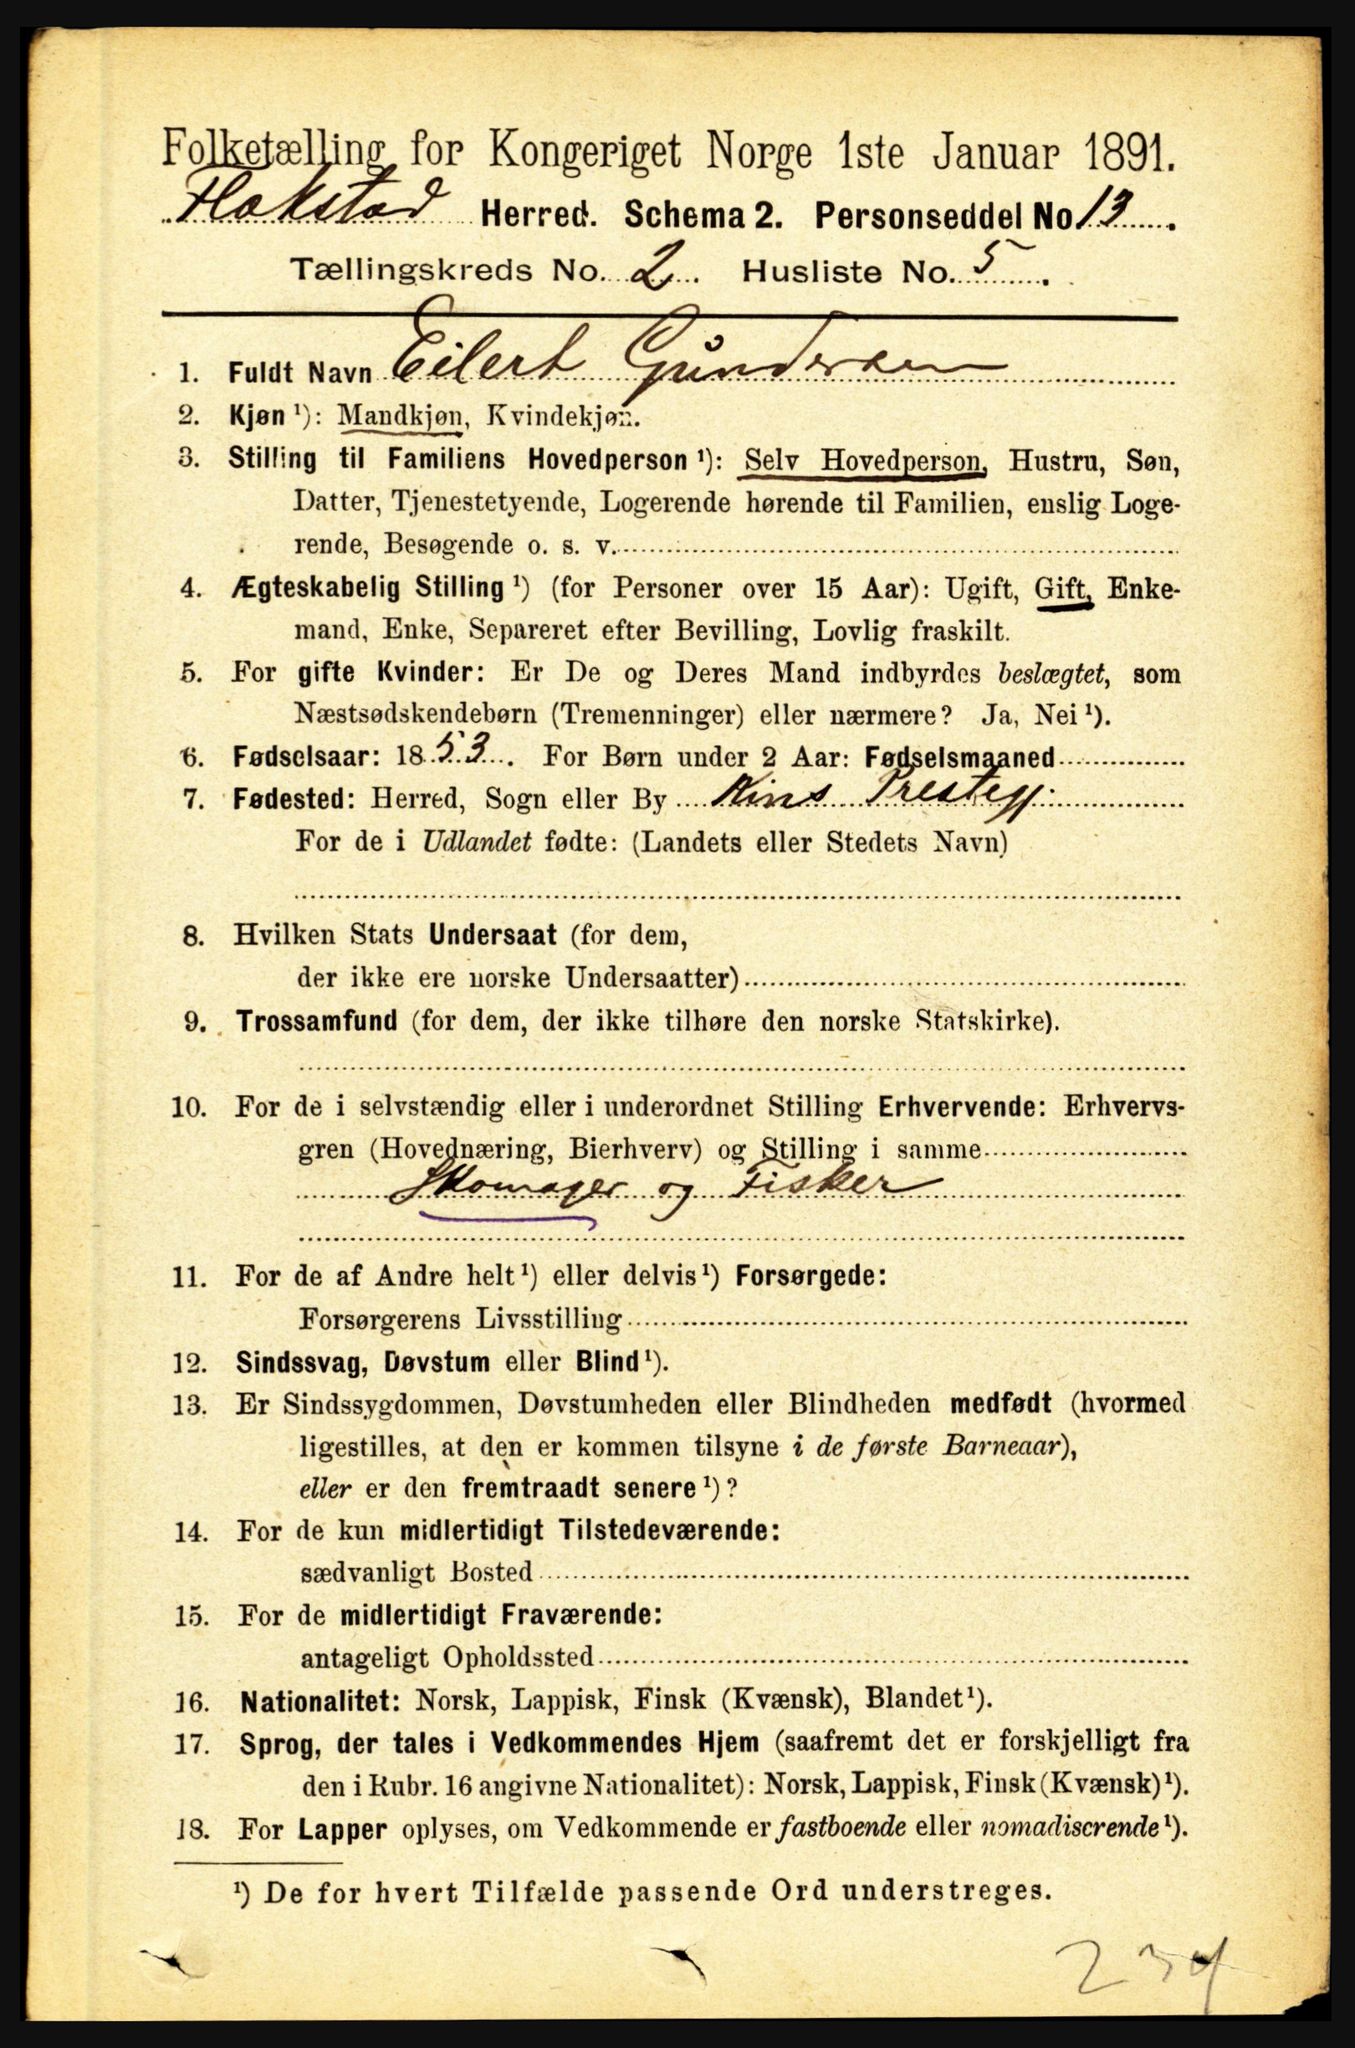 Folketælling for Kongeriget Norge 1ste Januar 1891.
Flakstad Herred. Schema 2. Personseddel No 13.
Tællingskreds No. 2. Husliste No. 5.
1. Fuldt Navn Eilert Gundersen
2. Kjøn ¹): Mandkjøn, Kvindekjøn.
3. Stilling til Familiens Hovedperson ¹): Selv Hovedperson, Hustru, Søn,
Datter, Tjenestetyende, Logerende hørende til Familien, enslig Loge-
rende, Besøgende o. s. v.
4. Ægteskabelig Stilling ¹) (for Personer over 15 Aar): Ugift, Gift, Enke-
mand, Enke, Separeret efter Bevilling, Lovlig fraskilt.
5. For gifte Kvinder: Er De og Deres Mand indbyrdes beslægtet, som
Næstsødskendebørn (Tremenninger) eller nærmere? Ja, Nei ¹).
6. Fødselsaar: 1853. For Børn under 2 Aar: Fødselsmaaned
7. Fødested: Herred, Sogn eller By Kins Prestegj.
For de i Udlandet fødte: (Landets eller Stedets Navn)
8. Hvilken Stats Undersaat (for dem,
der ikke ere norske Undersaatter)
9. Trossamfund (for dem, der ikke tilhøre den norske Statskirke).
10. For de i selvstændig eller i underordnet Stilling Erhvervende: Erhvervs-
gren (Hovednæring, Bierhverv) og Stilling i samme
Skomager og Fisker
11. For de af Andre helt ¹) eller delvis ¹) Forsørgede:
Forsørgerens Livsstilling
12. Sindssvag, Døvstum eller Blind ¹).
13. Er Sindssygdommen, Døvstumheden eller Blindheden medfødt (hvormed
ligestilles, at den er kommen tilsyne i de første Barneaar),
eller er den fremtraadt senere ¹)?
14. For de kun midlertidigt Tilstedeværende:
sædvanligt Bosted
15. For de midlertidigt Fraværende:
antageligt Opholdssted
16. Nationalitet: Norsk, Lappisk, Finsk (Kvænsk), Blandet ¹).
17. Sprog, der tales i Vedkommendes Hjem (saafremt det er forskjelligt fra
den i Rubr. 16 angivne Nationalitet): Norsk, Lappisk, Finsk (Kvænsk) ¹).
18. For Lapper oplyses, om Vedkommende er fastboende eller nomadiserende ¹).
¹) De for hvert Tilfælde passende Ord understreges.
234